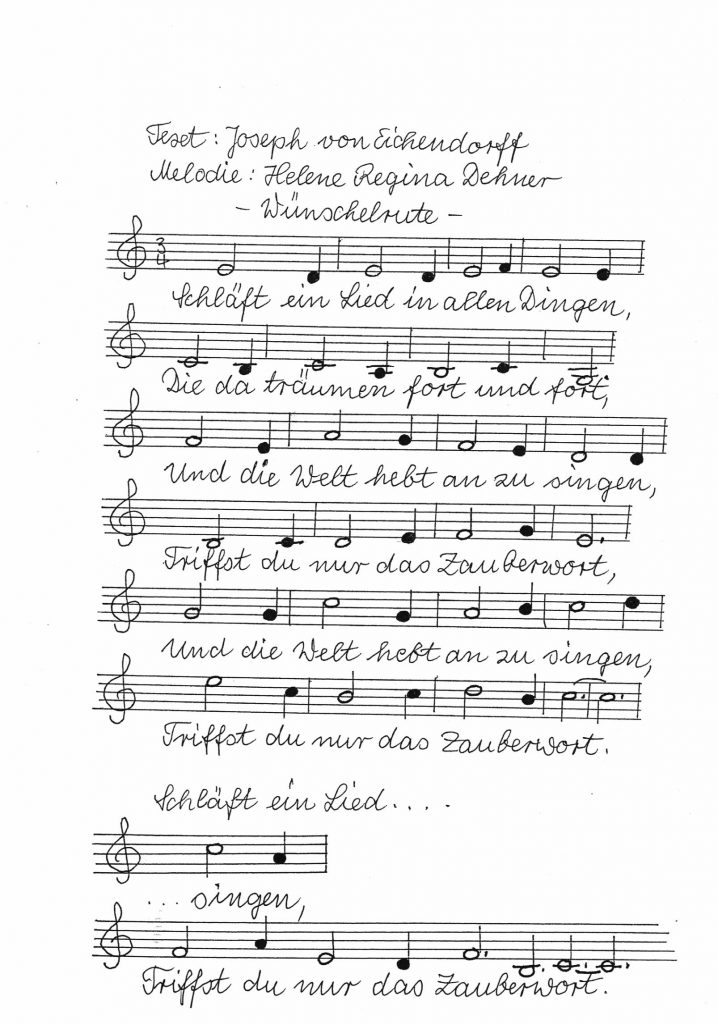 Text: Joseph von Eichendorff
Melodie: Helene Regina Dehner
- Wünschelrute -
3
4
Schläft ein Lied in allen Dingen,
Die da träumen fort und fort,
Und die Welt hebt an zu singen,
Triffst du nur das Zauberwort,
Und die Welt hebt an zu singen,
Triffst du nur das Zauberwort.
Schläft ein Lied....
... singen,
Triffst du nur das Zauberwort.